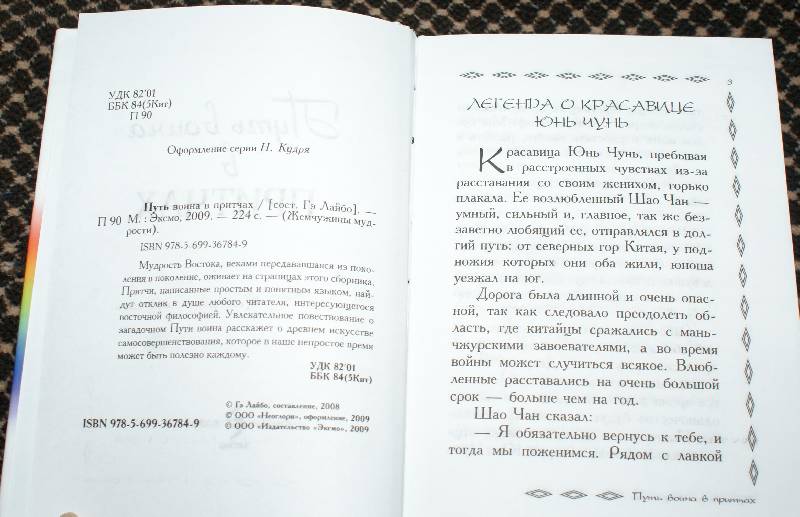 УДК 82'01
ББК 84(5Кит)
П 90
Оформление серии Н. Кудря
Путь воина в притчах / [сост. Гэ Лайбо]. —
П 90 М. : Эксмо, 2009. — 224 с. — (Жемчужины муд-
рости).
ISBN 978-5-699-36784-9
Мудрость Востока, веками передававшаяся из поко-
ления в поколение, оживает на страницах этого сборника.
Притчи, написанные простым и понятным языком, най-
дут отклик в душе любого читателя, интересующегося
восточной философией. Увлекательное повествование о
загадочном Пути воина расскажет о древнем искусстве
самосовершенствования, которое в наше непростое время
может быть полезно каждому.
УДК 82'01
ББК 84(5Кит)
© Гэ Лайбо, составление, 2008
© ООО «Неоглори», оформление, 2009
ISBN 978-5-699-36784-9 © ООО «Издательство «Эксмо», 2009
3
ЛЕГЕНДА О КРАСАВИЦЕ
ЮНЬ ЧУНЬ
Красавица Юнь Чунь, пребывая
в расстроенных чувствах из-за
расставания со своим женихом, горько
плакала. Ее возлюбленный Шао Чан —
умный, сильный и, главное, так же без-
заветно любящий ее, отправлялся в дол-
гий путь: от северных гор Китая, у под-
ножия которых они оба жили, юноша
уезжал на юг.
Дорога была длинной и очень опас-
ной, так как следовало преодолеть об-
ласть, где китайцы сражались с мань-
чжурскими завоевателями, а во время
войны может случиться всякое. Влюб-
ленные расставались на очень большой
срок — больше чем на год.
Шао Чан сказал:
— Я обязательно вернусь к тебе, и
тогда мы поженимся. Рядом с лавкой
Путь воина в притчах